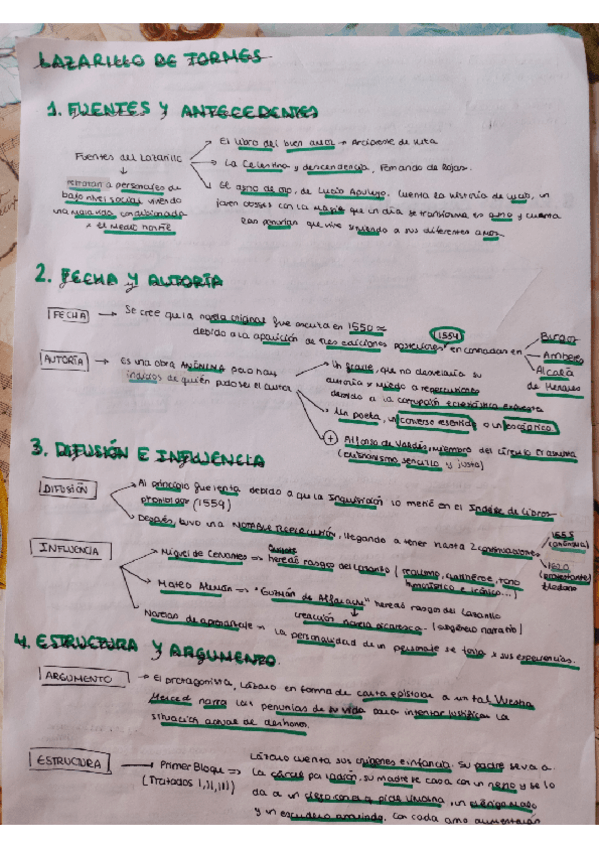 LAZARILLO DE TORMES
1. FUENTES Y ANTECEDENTES
Fuentes del Lazarillo
retratan a personajes de
bajo nivel social viviendo
una mala vida condicionada
x el medio hostil
El libro del buen amor → Arcipreste de Hita
La Celestina y descendencia, Fernando de Rojas.
El asno de oro, de Lucio Apuleyo. Cuenta la historia de Lucio, un
joven obseso con la magia que un día se transforma en asno y cuenta
las que vive sirviendo a sus diferentes amos
2. FECHA Y AUTORÍA
FECHA → Se cree que la novela original fue escrita en 1550
debido a la aparición de tres ediciones posteriores en 1554 en
Burgos
Amberes
Alcalá
de Henares
AUTORÍA → Es una obra ANÓNIMA pero hay
indicios de quién pudo ser el autor
Un fraile, que no desvelaría su
autoría x miedo a repercusiones
debido a la corrupción eclesiástica expuesta
Un poeta, un converso resentido o un
+ Alfonso de Valdés, miembro del círculo Erasmista
sencillo y justo)
3. DIFUSIÓN E INFLUENCIA
DIFUSIÓN
Al principio fue lenta debido a que la Inquisición lo metió en el Índice de libros
prohibidos (1559)
Después, tuvo una NOTABLE REPERCUSIÓN, llegando a tener hasta 2 continuaciones
1555
1620
INFLUENCIA
Miguel de Cervantes ⇒ heredó rasgos del Lazarillo (realismo, tono
Quijote
humorístico e irónico...)
Mateo Alemán ⇒ "Guzmán de Alfarache" heredó rasgos del Lazarillo
creación novela picaresca. (subgénero narrativo)
Novelas de aprendizaje → la personalidad de un personaje se forja x sus experiencias.
4. ESTRUCTURA Y ARGUMENTO.
ARGUMENTO → El protagonista, Lázaro en forma de carta epistolar a un tal Vuestra
Merced narra las penurias de su vida para intentar justificar la
situación actual de deshonor.
ESTRUCTURA → Primer Bloque ⇒
(Tratados I, II, III)
Lázaro cuenta sus orígenes e infancia. Su padre se va a
la cárcel por ladrón, su madre se casa con un negro y se lo
da a un ciego un clérigo
y un escudero arruinado. Con cada amo aumentarán